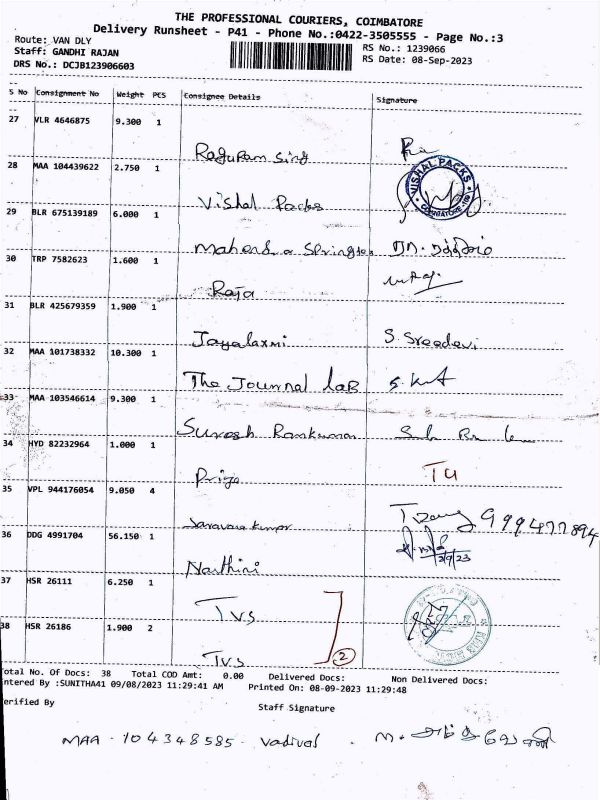 THE PROFESSIONAL COURIERS, COIMBATORE
Delivery Runsheet - P41 - Phone No.:0422-3505555 - Page No.:3
Route: VAN DLY RS No.: 1239066
Staff: GANDHI RAJAN RS Date: 08-Sep-2023
DRS No.: DCJB123906603
S No Consignment No Weight PCS Consignee Details Signature
27 VLR 4646875 9.300 1
Raguram Sing
28 MAA 104439622 2.750 1
VISHAL PACKS COIMBATORE
Vishal Packs
29 BLR 675139189 6.000 1
Mahendra Springtex
30 TRP 7582623 1.600 1
Raja
31 BLR 425679359 1.900 1
Jayalaxmi S. Sreedevi
32 MAA 101738332 10.300 1
The Journal Lab
33 MAA 103546614 9.300 1
Suresh Ramkumar
34 HYD 82232964 1.000 1
Priya
35 VPL 944176054 9.050 4
Saravana kumar
36 DDG 4991704 56.150 1
Narthini
37 HSR 26111 6.250 1
T.V.S
38 HSR 26186 1.900 2
TVS 2
otal No. Of Docs: 38 Total COD Amt: 0.00 Delivered Docs: Non Delivered Docs:
ntered By :SUNITHA41 09/08/2023 11:29:41 AM Printed On: 08-09-2023 11:29:48
erified By Staff Signature
MAA - 104348585 - Vadival